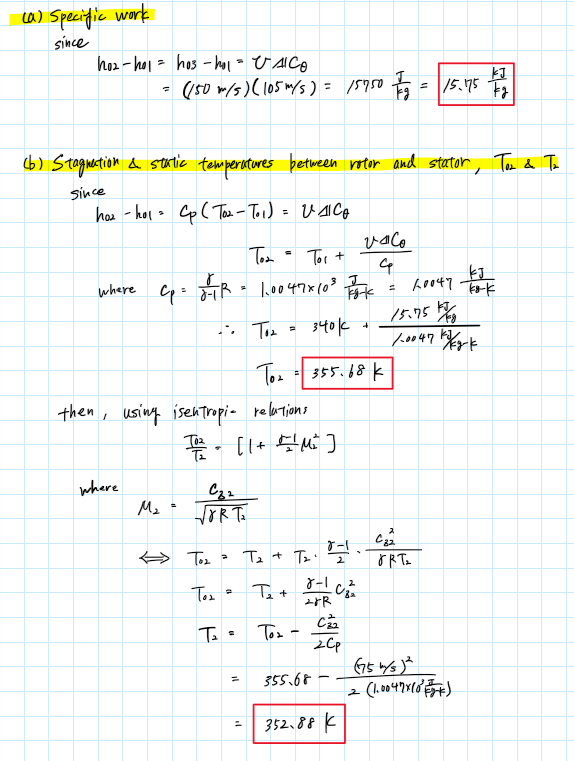 (a) Specific work
since
h02 - h01 = h03 - h01 = U ΔCθ
= (150 m/s)(105 m/s) = 15750 J/kg = 15.75 kJ/kg
(b) Stagnation & static temperatures between rotor and stator, T02 & T2
since
h02 - h01 = Cp (T02 - T01) = U ΔCθ
T02 = T01 + U ΔCθ / Cp
where Cp = γ/(γ-1) R = 1.0047×10³ J/kg-K = 1.0047 kJ/kg-K
∴ T02 = 340K + 15.75 kJ/kg / 1.0047 kJ/kg-K
T02 = 355.68 K
then, using isentropi- relations
T02/T2 = [1 + (γ-1)/2 M2²]
where
M2 = Cz2 / √(γRT2)
⟺ T02 = T2 + T2 · (γ-1)/2 · Cz2²/(γRT2)
T02 = T2 + (γ-1)/(2γR) Cz2²
T2 = T02 - Cz2²/(2Cp)
= 355.68 - (75 m/s)² / 2 (1.0047×10³ J/kg-K)
= 352.88 K